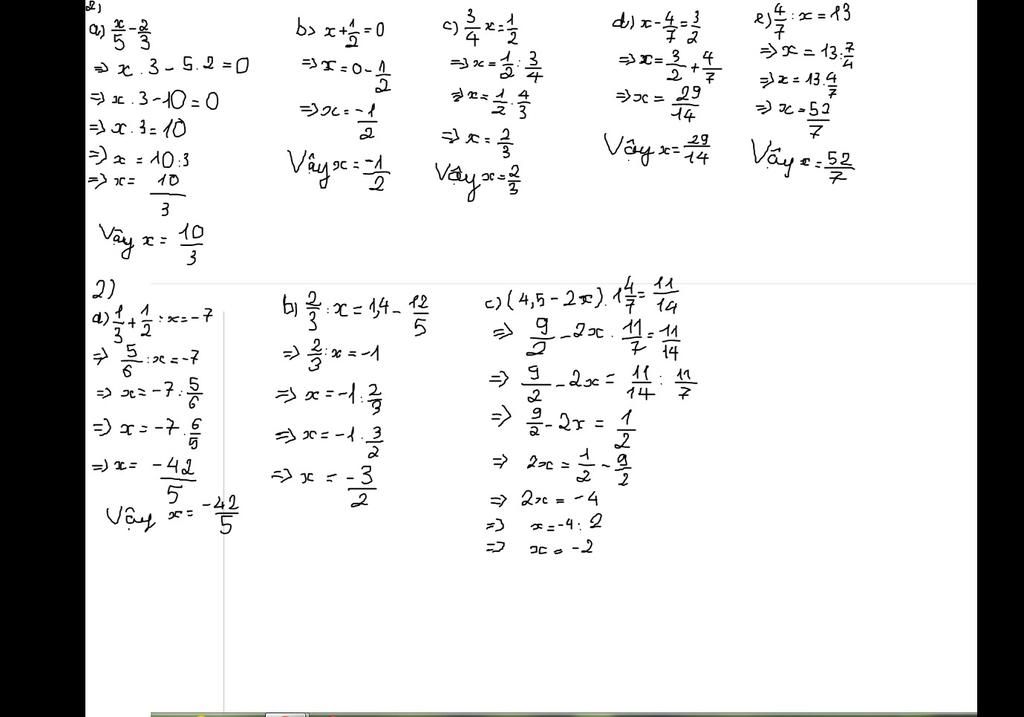 2)
a) x/5 - 2/3
=> x . 3 - 5.2 = 0
=> x . 3 - 10 = 0
=> x . 3 = 10
=> x = 10 : 3
=> x = 10/3
Vậy x = 10/3
b) x + 1/2 = 0
=> x = 0 - 1/2
=> x = -1/2
Vậy x = -1/2
c) 3/4 x = 1/2
=> x = 1/2 : 3/4
=> x = 1/2 . 4/3
=> x = 2/3
Vậy x = 2/3
d) x - 4/7 = 3/2
=> x = 3/2 + 4/7
=> x = 29/14
Vậy x = 29/14
e) 4/7 : x = 13
=> x = 13 : 7/4
=> x = 13 . 4/7
=> x = 52/7
Vậy x = 52/7
2)
a) 1/3 + 1/2 : x = -7
=> 5/6 : x = -7
=> x = -7 : 5/6
=> x = -7 . 6/5
=> x = -42/5
Vậy x = -42/5
b) 2/3 : x = 1,4 - 12/5
=> 2/3 : x = -1
=> x = -1 : 2/3
=> x = -1 . 3/2
=> x = -3/2
c) (4,5 - 2x) . 1 4/7 = 11/14
=> 9/2 - 2x . 11/7 = 11/14
=> 9/2 - 2x = 11/14 : 11/7
=> 9/2 - 2x = 1/2
=> 2x = 1/2 - 9/2
=> 2x = -4
=> x = -4 : 2
=> x = -2